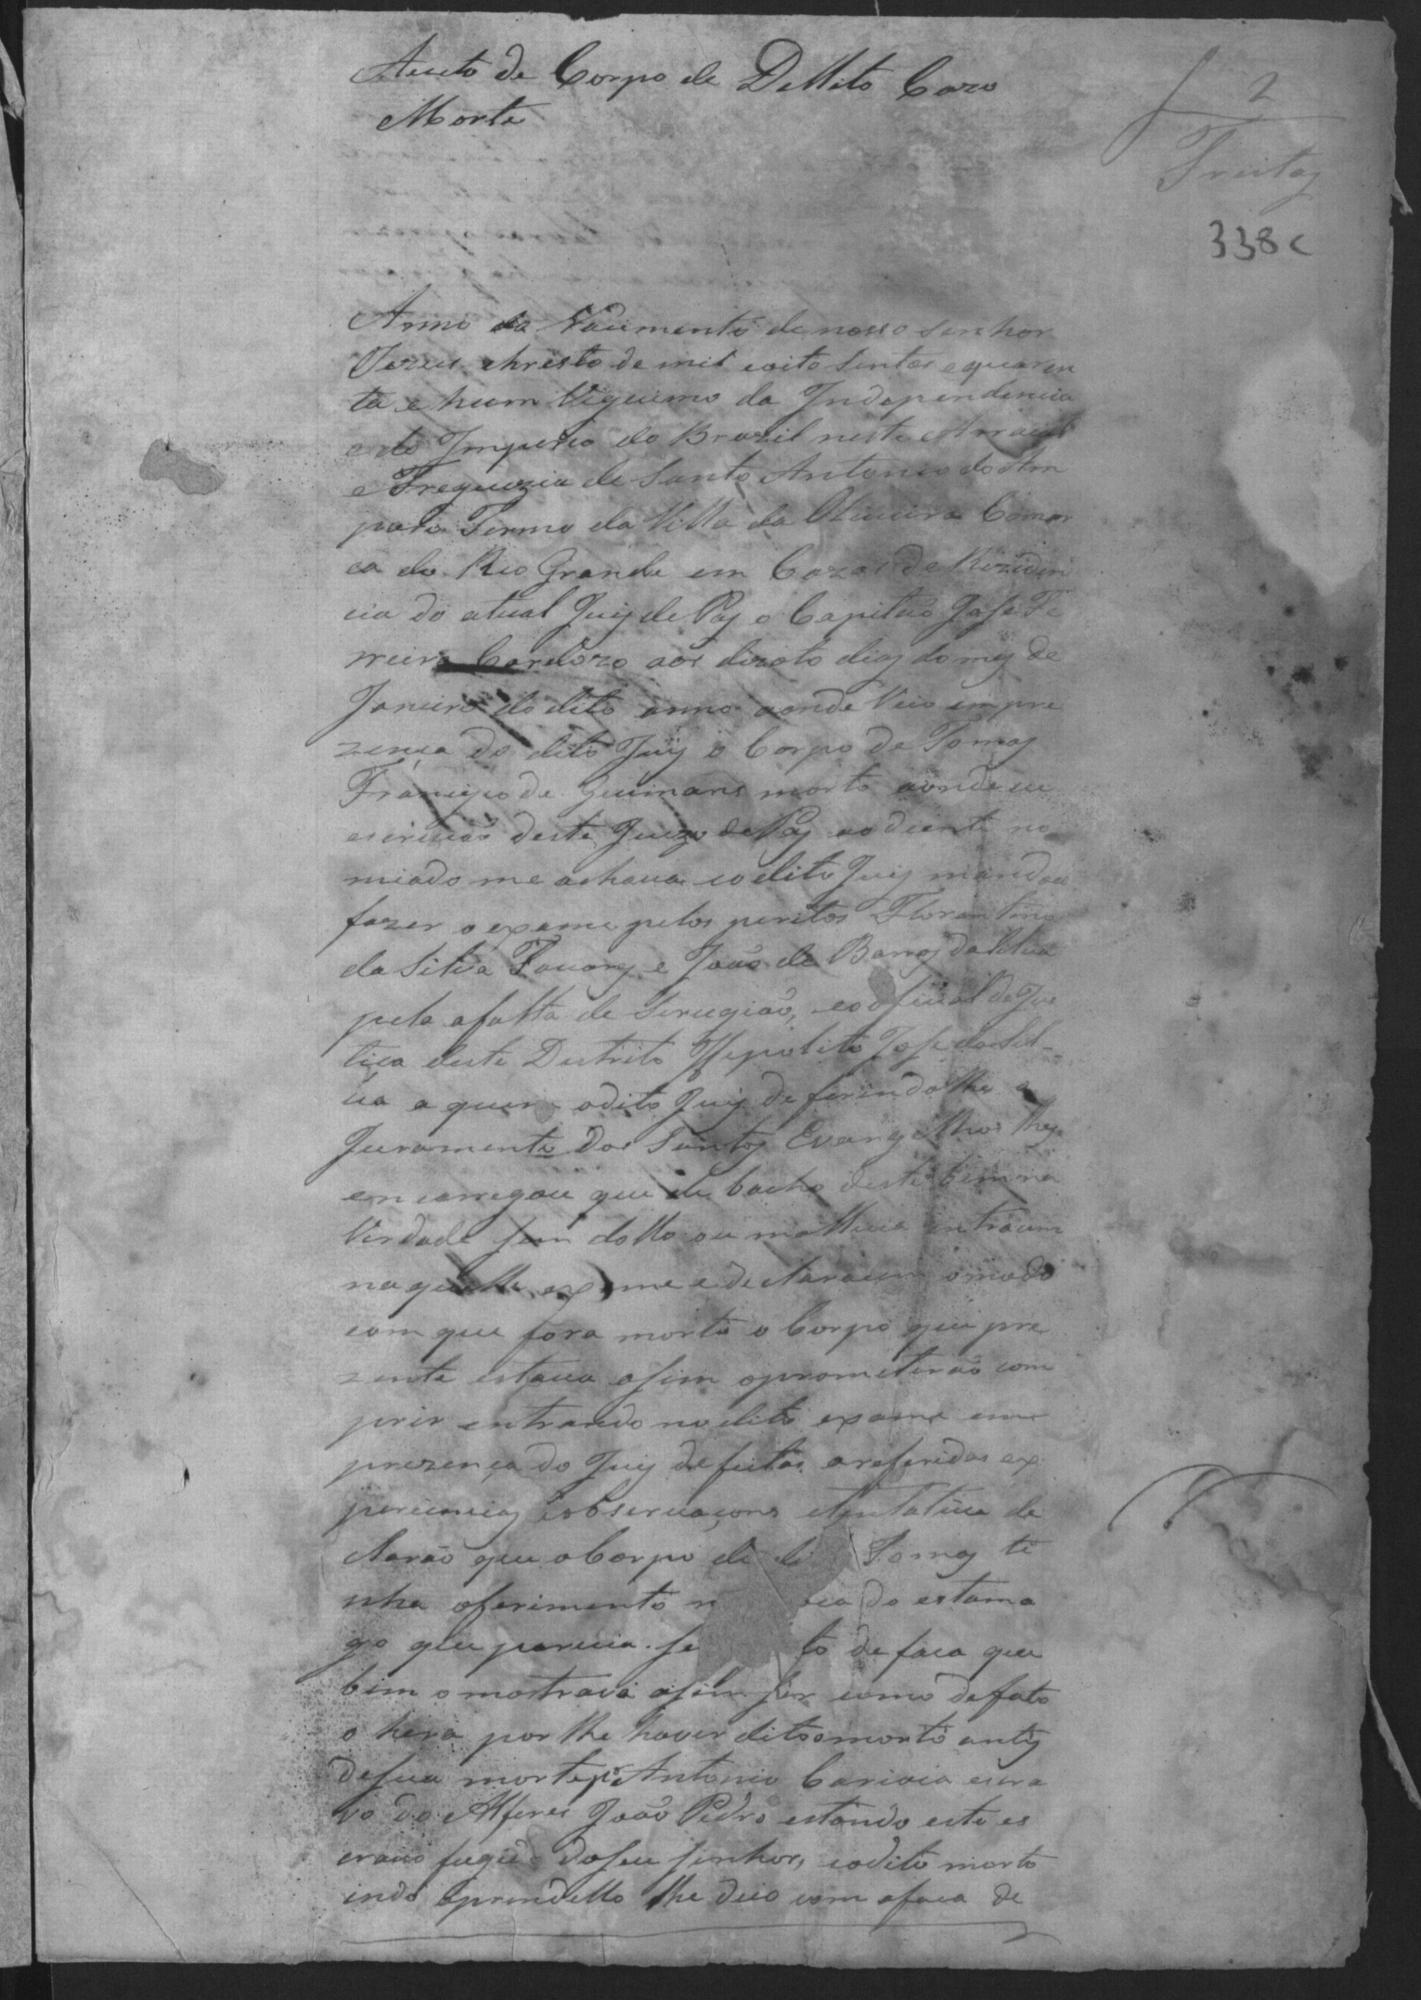 Aucto de Corpo de Dellito Cazo
Morte
2
Freitas
338c
Anno da Nacimento de nosso senhor
Jezus christo de mil eoito sentos e quaren
ta e hum Vigecimo da Independencia
e do Imperio do Brazil neste Arraial
e Freguezia de Santo Antonio do Am
paro Termo da Villa da Oliveira Comar
ca do Rio Grande em Cazas de Reziden
cia do atual Juiz de Paz o Capitão José Fe
rreira Cardozo aos dizoto dias do mez de
Janeiro do dito anno aonde Veio em pre
zença do dito Juiz o Corpo de Tomaz
Francisco de Guimarais morto aonde eu
escrivão deste Juizo de Paz ao diente no
miado me achava eo dito Juiz mandou
fazer o exame pelos peritos Florentino
da Silva Tavares e João de Barros da Silva
pela afalta de Sirugião, eo oficial de Jus
tiça deste Destrito Hepolito Jose da Sil-
va a quem odito Juiz deferindolhe o
Juramento dos Santos Evangelhos lhes
encarregou que de bacho deste bem na
Verdade sem dollo ou mallicia entraum
naquelle exame e declaracem o modo
com que fora morto o Corpo que pre
zente estava asim oprometerão com
prir entrando no dito exame em
prezença do Juiz de feitas as referidas ex
periencias observacons de
clarão que o Corpo de Tomaz ti
nha oferimento do estama
go que parecia de faca que
bem o mostrava asim ser como de fato
o hera por lhe haver dito o morto antes
de sua morte q Antonio escra
vo do Alferes João Pedro estando este es
cravo fugido do seu senhor, eo dito morto
indo aprendello lhe deo com a faca de